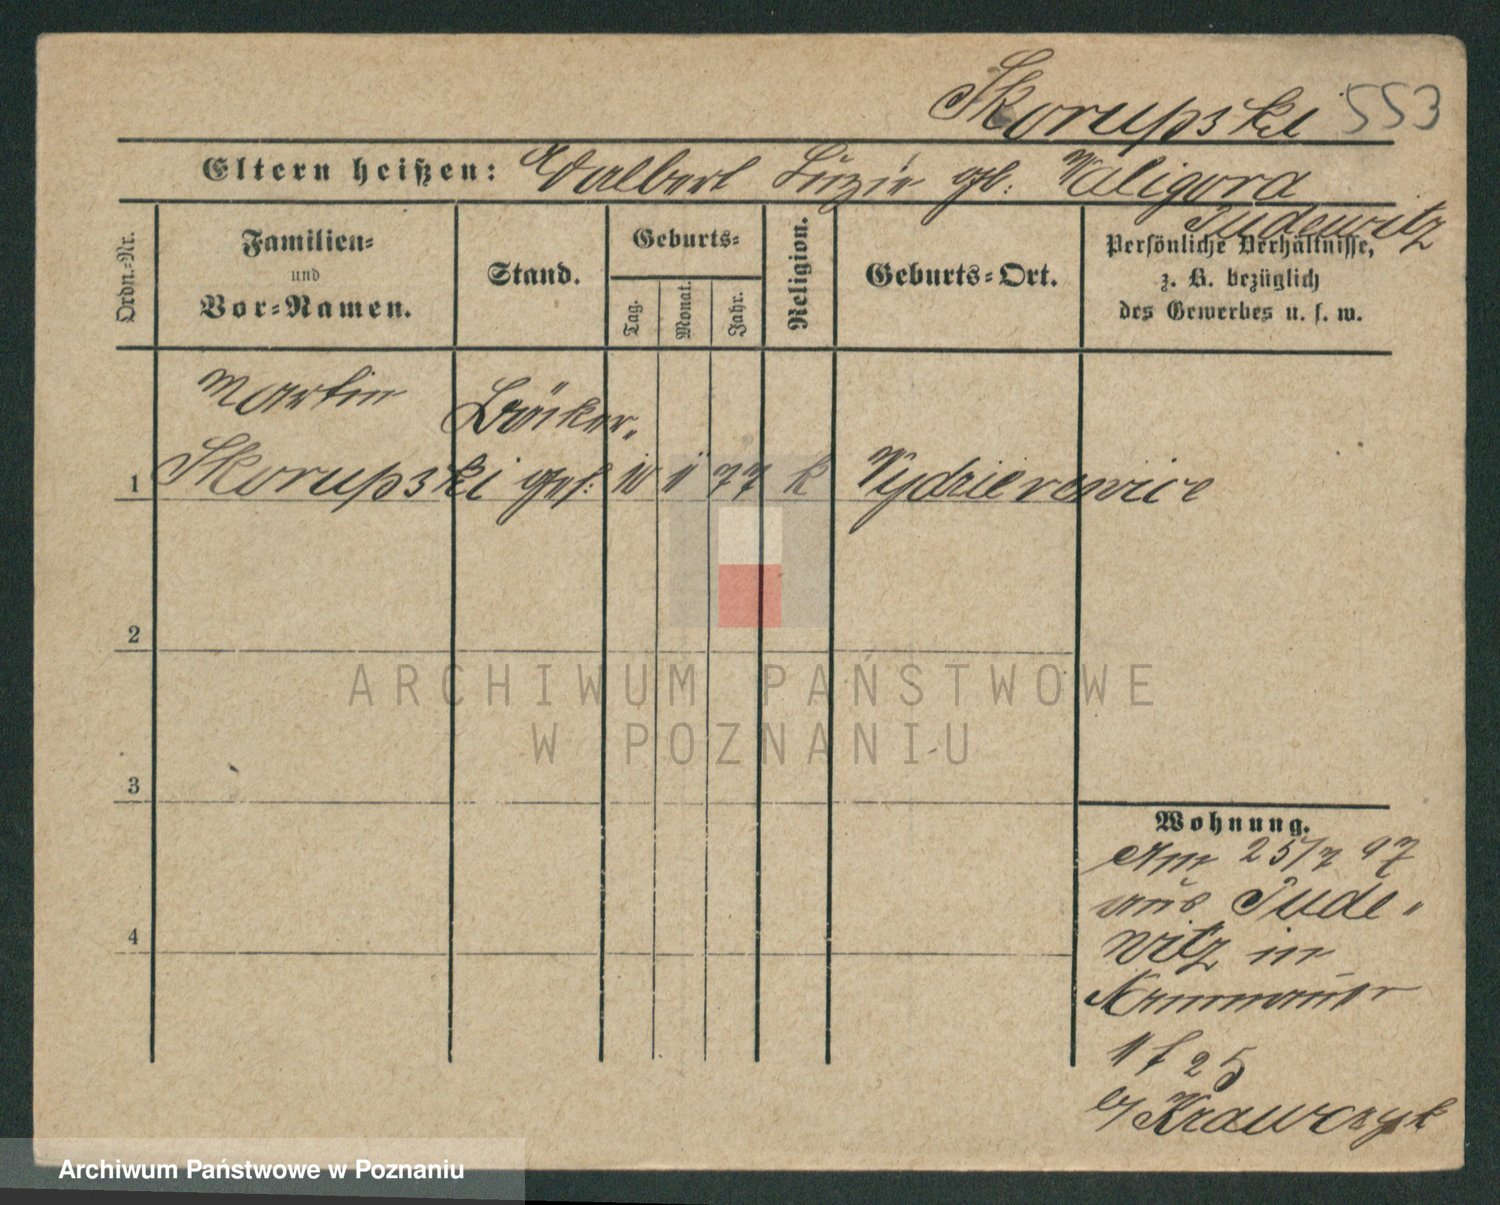 Skorupski 553
Eltern heißen: Adalbert Luzie geb. Waligora
Pudewitz
Ordn.-Nr.
Familien- und Vor-Namen.
Stand.
Geburts-
Tag.
Monat.
Jahr.
Religion.
Geburts-Ort.
Persönliche Verhältnisse,
z. B. bezüglich
des Gewerbes u. s. w.
Martin Bäcker
1 Skorupski 10 11 77 k
2
3
4
Wohnung.
Am 25/7 97
aus Pude-
witz in
25
b/ Krawczyk
ARCHIWUM PAŃSTWOWE
W POZNANIU
Archiwum Państwowe w Poznaniu